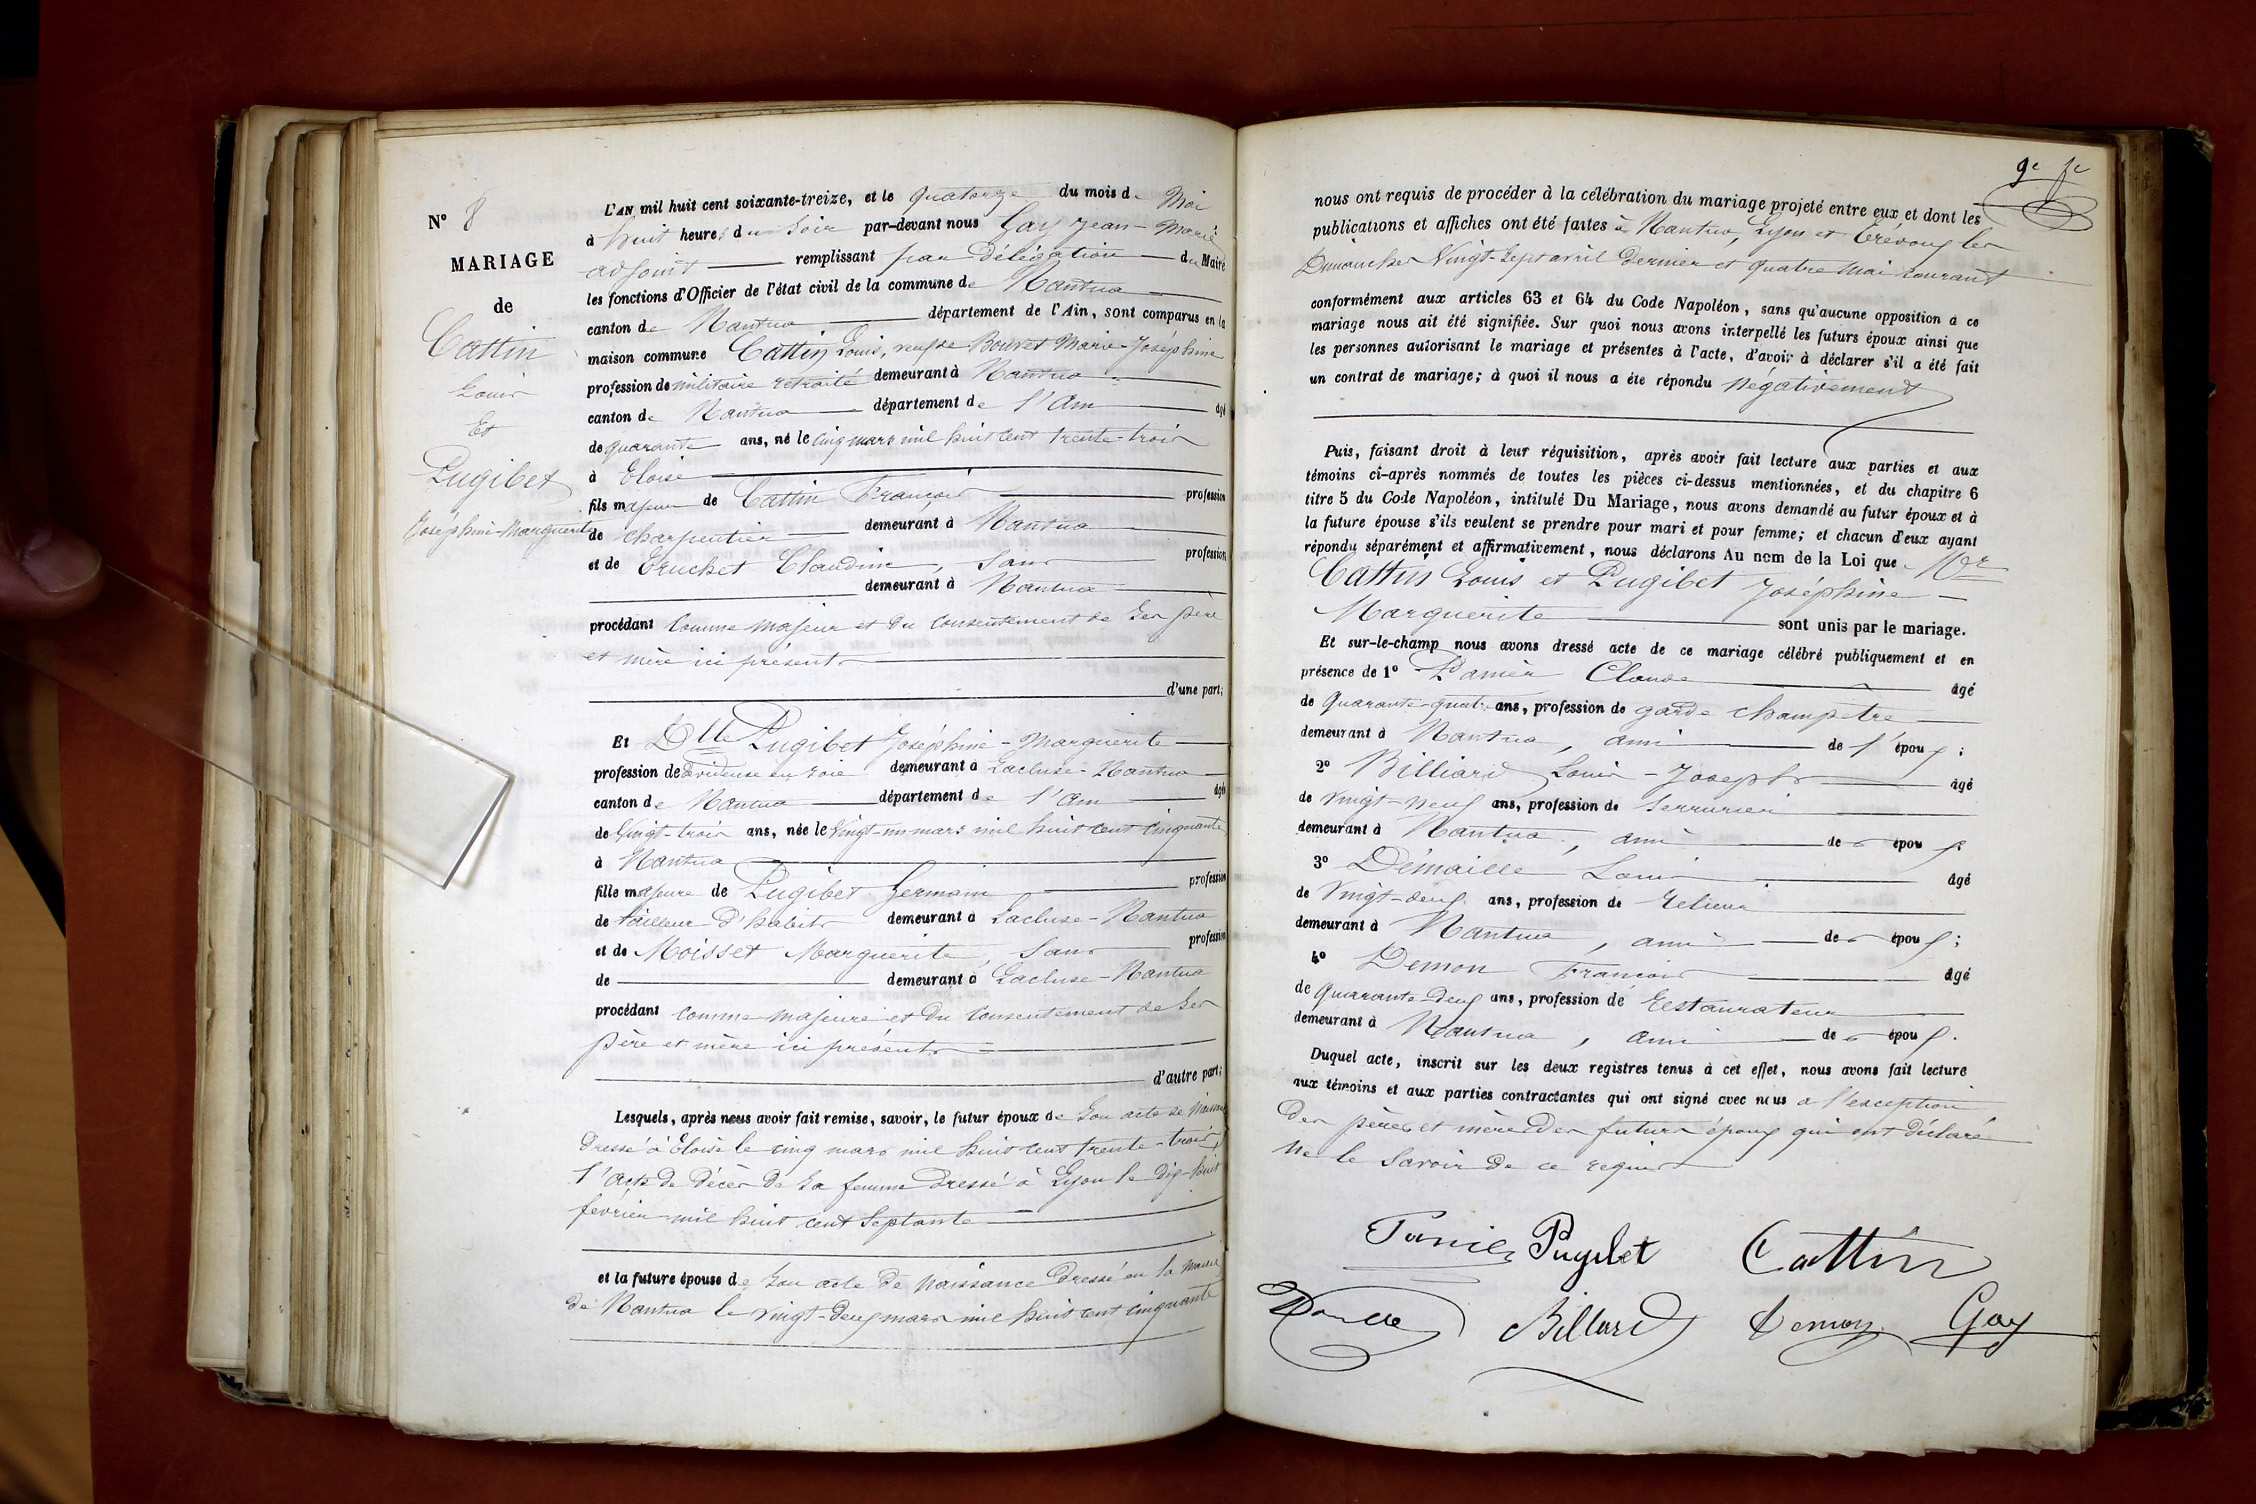 N° 8
MARIAGE
de
Cattin
Louis
Et
Pugibet
Joséphine-Marguerite
L'AN mil huit cent soixante-treize, et le quatorze du mois de Mai
à huit heures du soir par-devant nous Gay Jean-Marie
adjoint remplissant par délégation du Maire
les fonctions d'Officier de l'état civil de la commune de Nantua
canton de Nantua département de l'Ain, sont comparus en la
maison commune Cattin Louis, veuf de Bouvet Marie-Joséphine
profession de militaire retraité demeurant à Nantua
canton de Nantua département de l'Ain âgé
de quarante ans, né le cinq mars mil huit cent trente-trois
à Eloise
fils majeur de Cattin François profession
de charpentier demeurant à Nantua
et de Truchet Claudine, sans profession
demeurant à Nantua
procédant comme majeur et du consentement de ses père
et mère ici présents
d'une part;
Et Dlle Pugibet Joséphine-Marguerite
profession de dévideuse en soie demeurant à Lacluse-Nantua
canton de Nantua département de l'Ain âgée
de Vingt-trois ans, née le Vingt-un mars mil huit cent cinquante
à Nantua
fille majeure de Pugibet Germain profession
de tailleur d'habits demeurant à Lacluse-Nantua
et de Moisset Marguerite, sans profession
de demeurant à Lacluse-Nantua
procédant comme majeure et du consentement de ses
père et mère ici présents
d'autre part;
Lesquels, après nous avoir fait remise, savoir, le futur époux de son acte de
dressé à Eloise le cinq mars mil huit cent trente-trois,
l'acte de décès de sa femme dressé à Lyon le dix-huit
février mil huit cent septante
et la future épouse de son acte de naissance dressé en la Mairie
de Nantua le vingt-deux mars mil huit cent cinquante
9e fe
nous ont requis de procéder à la célébration du mariage projeté entre eux et dont les
publications et affiches ont été faites à Nantua, Lyon et Trévoux les
Dimanches Vingt-sept avril dernier et quatre mai courant
conformément aux articles 63 et 64 du Code Napoléon, sans qu'aucune opposition à ce
mariage nous ait été signifiée. Sur quoi nous avons interpellé les futurs époux ainsi que
les personnes autorisant le mariage et présentes à l'acte, d'avoir à déclarer s'il a été fait
un contrat de mariage; à quoi il nous a été répondu négativement
Puis, faisant droit à leur réquisition, après avoir fait lecture aux parties et aux
témoins ci-après nommés de toutes les pièces ci-dessus mentionnées, et du chapitre 6
titre 5 du Code Napoléon, intitulé Du Mariage, nous avons demandé au futur époux et à
la future épouse s'ils veulent se prendre pour mari et pour femme; et chacun d'eux ayant
répondu séparément et affirmativement, nous déclarons Au nom de la Loi que Mr
Cattin Louis et Pugibet Joséphine
Marguerite sont unis par le mariage.
Et sur-le-champ nous avons dressé acte de ce mariage célébré publiquement et en
présence de 1° Panier Claude âgé
de Quarante-quatre ans, profession de garde champêtre
demeurant à Nantua, ami de l'époux;
2° Billiard Louis-Joseph âgé
de vingt-neuf ans, profession de serrurier
demeurant à Nantua, ami de époux
3° Démaille Louis âgé
de Vingt-deux ans, profession de relieur
demeurant à Nantua, ami de époux;
4° Demon François âgé
de Quarante-deux ans, profession de restaurateur
demeurant à Nantua, ami de époux.
Duquel acte, inscrit sur les deux registres tenus à cet effet, nous avons fait lecture
aux témoins et aux parties contractantes qui ont signé avec nous à l'exception
des pères et mères des futurs époux qui ont déclaré
ne le savoir de ce requis
Panier Pugibet Cattin
Billiard Demon Gay